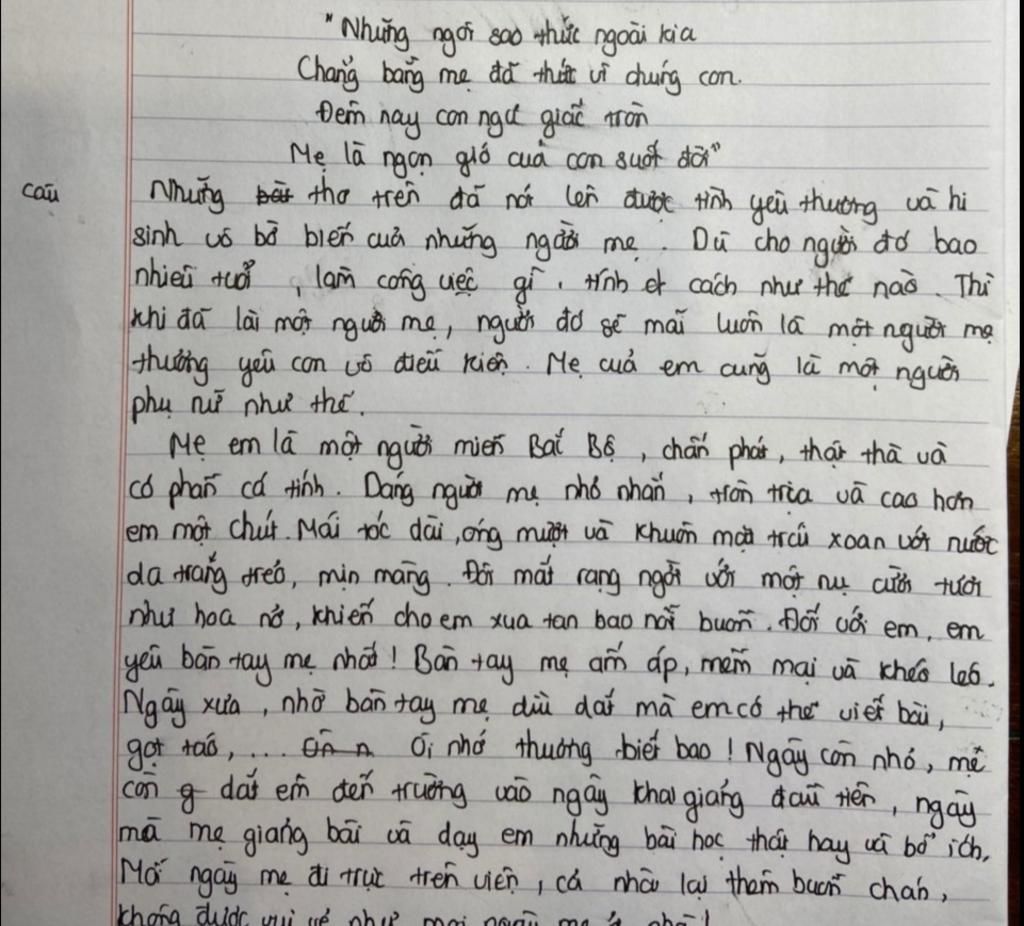 "Những ngôi sao thức ngoài kia
Chẳng bằng mẹ đã thức vì chúng con.
Đêm nay con ngủ giấc tròn
Mẹ là ngọn gió của con suốt đời"
câu Những bài thơ trên đã nói lên được tình yêu thương và hi
sinh vô bờ biến của những người mẹ. Dù cho người đó bao
nhiêu tuổi, làm công việc gì, tính cách như thế nào. Thì
khi đã lài một người mẹ, người đó sẽ mãi luôn là một người mẹ
thương yêu con vô điều kiện. Mẹ của em cũng là một người
phụ nữ như thế.
Mẹ em là một người miền Bắc Bộ, chân phát, thật thà và
có phần cá tính. Dáng người mẹ nhỏ nhắn, tròn trịa và cao hơn
em một chút. Mái tóc dài, óng mượt và khuôn mặt trái xoan với nước
da trắng trẻo, mịn màng. Đôi mắt rạng ngời với một nụ cười tươi
như hoa nở, khiến cho em xua tan bao nỗi buồn. Đối với em, em
yêu bàn tay mẹ nhất! Bàn tay mẹ ấm áp, mềm mại và khéo léo.
Ngày xưa, nhờ bàn tay mẹ dìu dắt mà em có thể viết bài,
gọt táo, ... Ôi nhớ thương biết bao! Ngày còn nhỏ, mẹ
còn dắt em đến trường vào ngày khai giảng đầu tiên, ngày
mà mẹ giảng bài và dạy em những bài học thật hay và bổ ích.
Mỗi ngày mẹ đi trực trên viện, cả nhà lại thêm buồn chán,
không được vui vẻ như mọi ngày mẹ ở nhà!